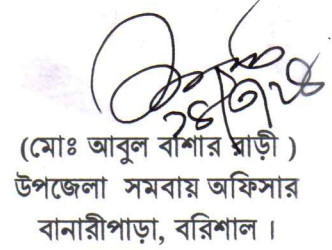 (মোঃ আবুল বাশার রাড়ী )
উপজেলা সমবায় অফিসার
বানারীপাড়া, বরিশাল ।